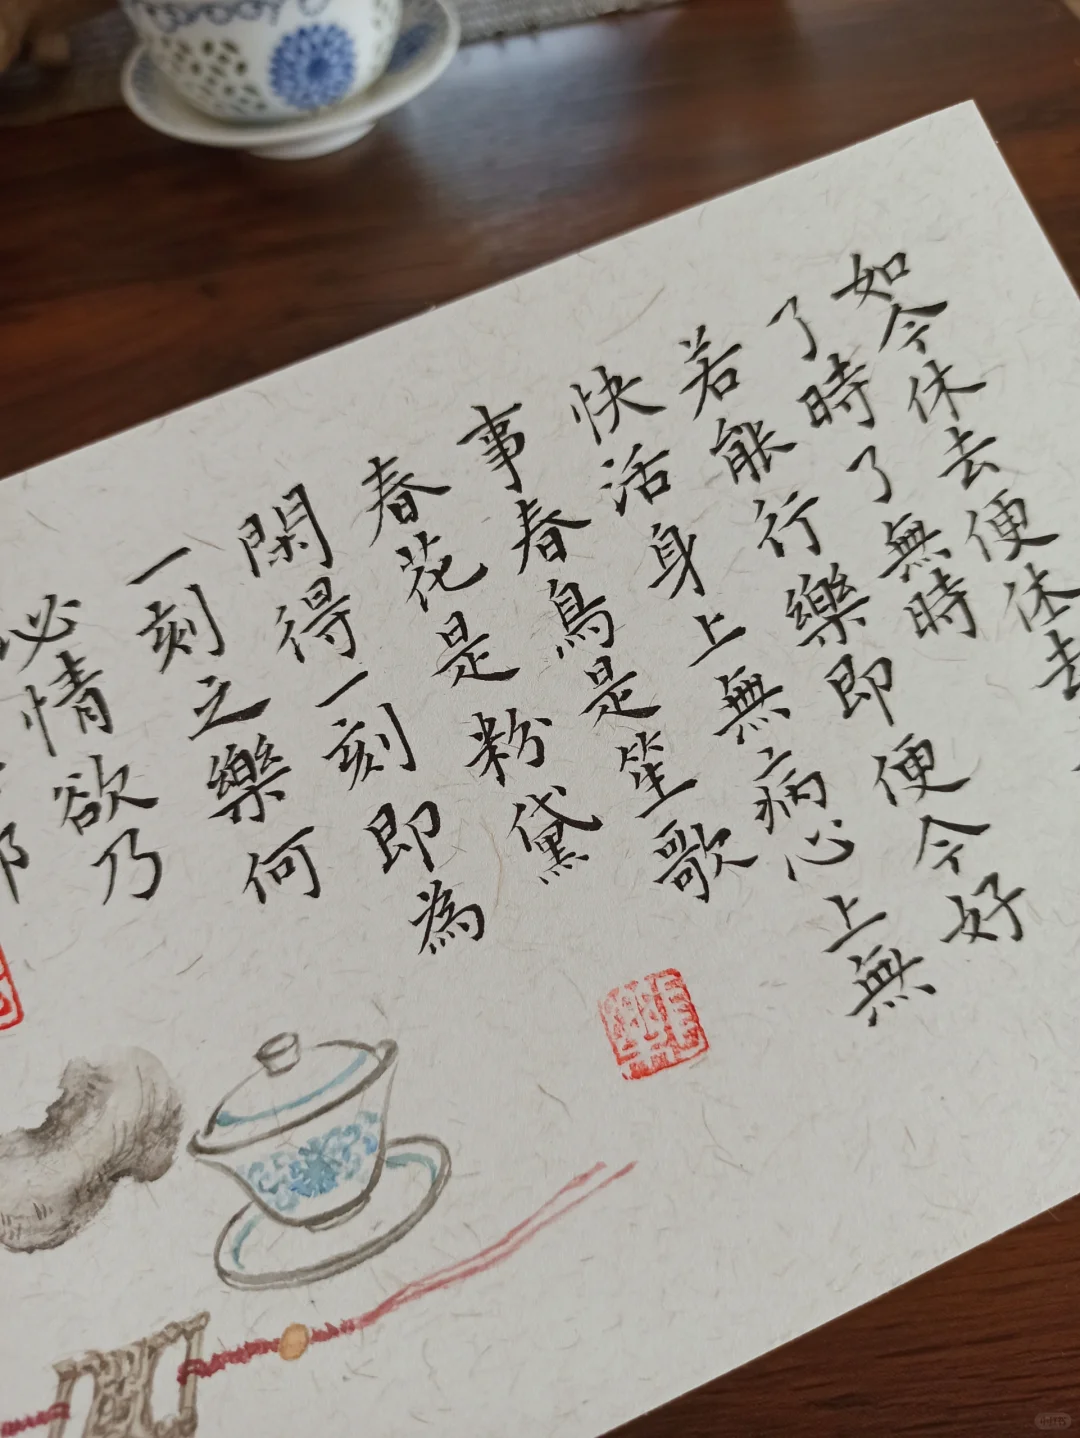 如今休去便休去
了時了無時
若能行樂即便今好
快活身上無病心上無
事春鳥是笙歌
春花是粉黛
閑得一刻即為
一刻之樂何
必情欲乃